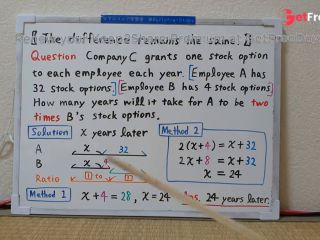 [[ The difference remains the same! ]]
Question Company C grants one stock option
to each employee each year. [Employee A has
32 stock options.] [Employee B has 4 stock options.]
How many years will it take for A to be two
times B's stock options.
Solution x years later
A x 32
B x 4
Ratio 1 to 1
Method 2
2(x+4) = x+32
2x+8 = x+32
x = 24
Method 1 x+4=28, x=24 Ans. 24 years later.